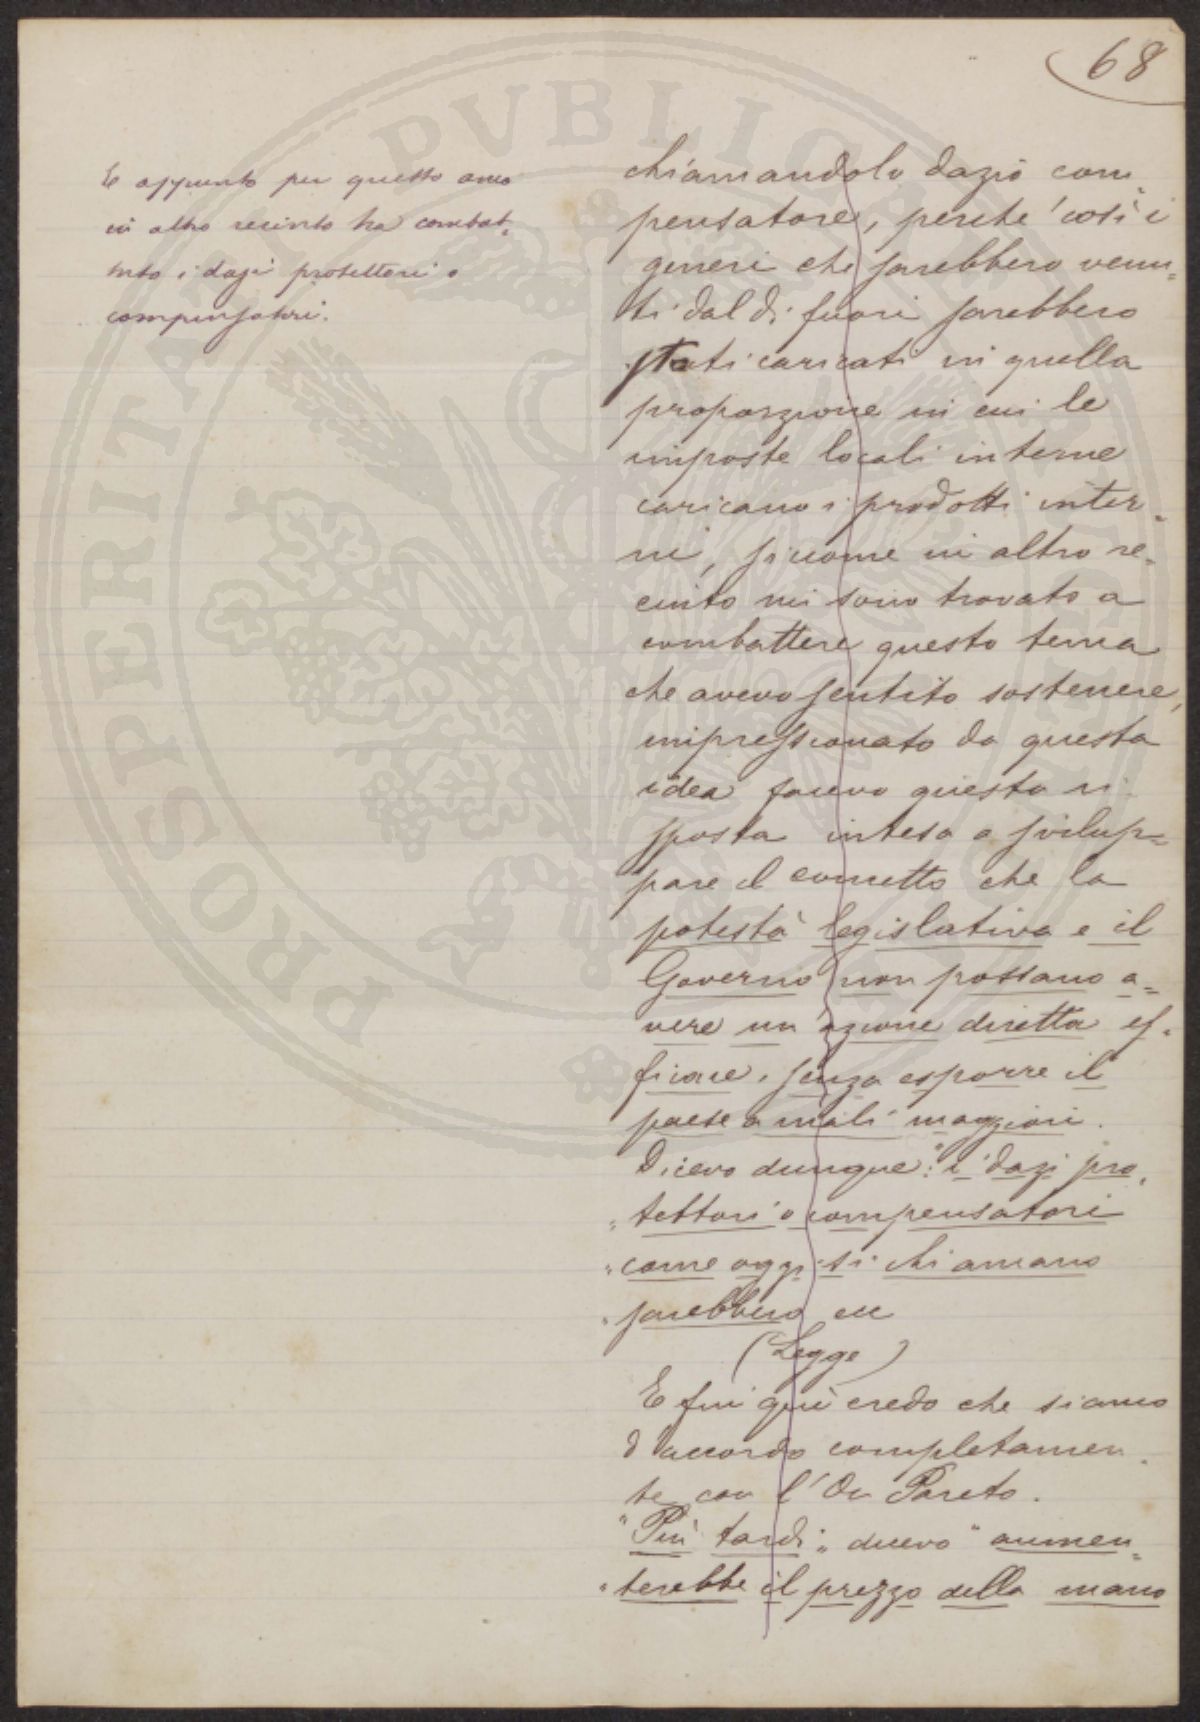 68
E appunto per questo anco
in altro recinto ha combat-
tuto i dazi protettori o
compensatori.
chiamandolo dazio com=
pensatore, perchè così i
generi che sarebbero venu=
ti dal di fuori sarebbero
stati caricati in quella
proporzione in cui le
imposte locali interne
caricano i prodotti inter-
ni, siccome in altro re-
cinto mi sono trovato a
combattere questo tema
che avevo sentito sostenere,
impressionato da questa
idea facevo questa ri-
sposta intesa a svilup=
pare il concetto che la
potestà legislativa e il
Governo non possano a=
vere un'azione diretta ef-
ficace, senza esporre il
paese a mali maggiori.
Dicevo dunque: "i dazi pro-
"tettori o compensatori
"come oggi si chiamano
"sarebbero ecc
(Legge)
E fin qui credo che siamo
d'accordo completamen-
te con l'On Pareto.
"Più tardi", dicevo "aumen=
"terebbe il prezzo della mano
PVBLICA
PROSPERITAS